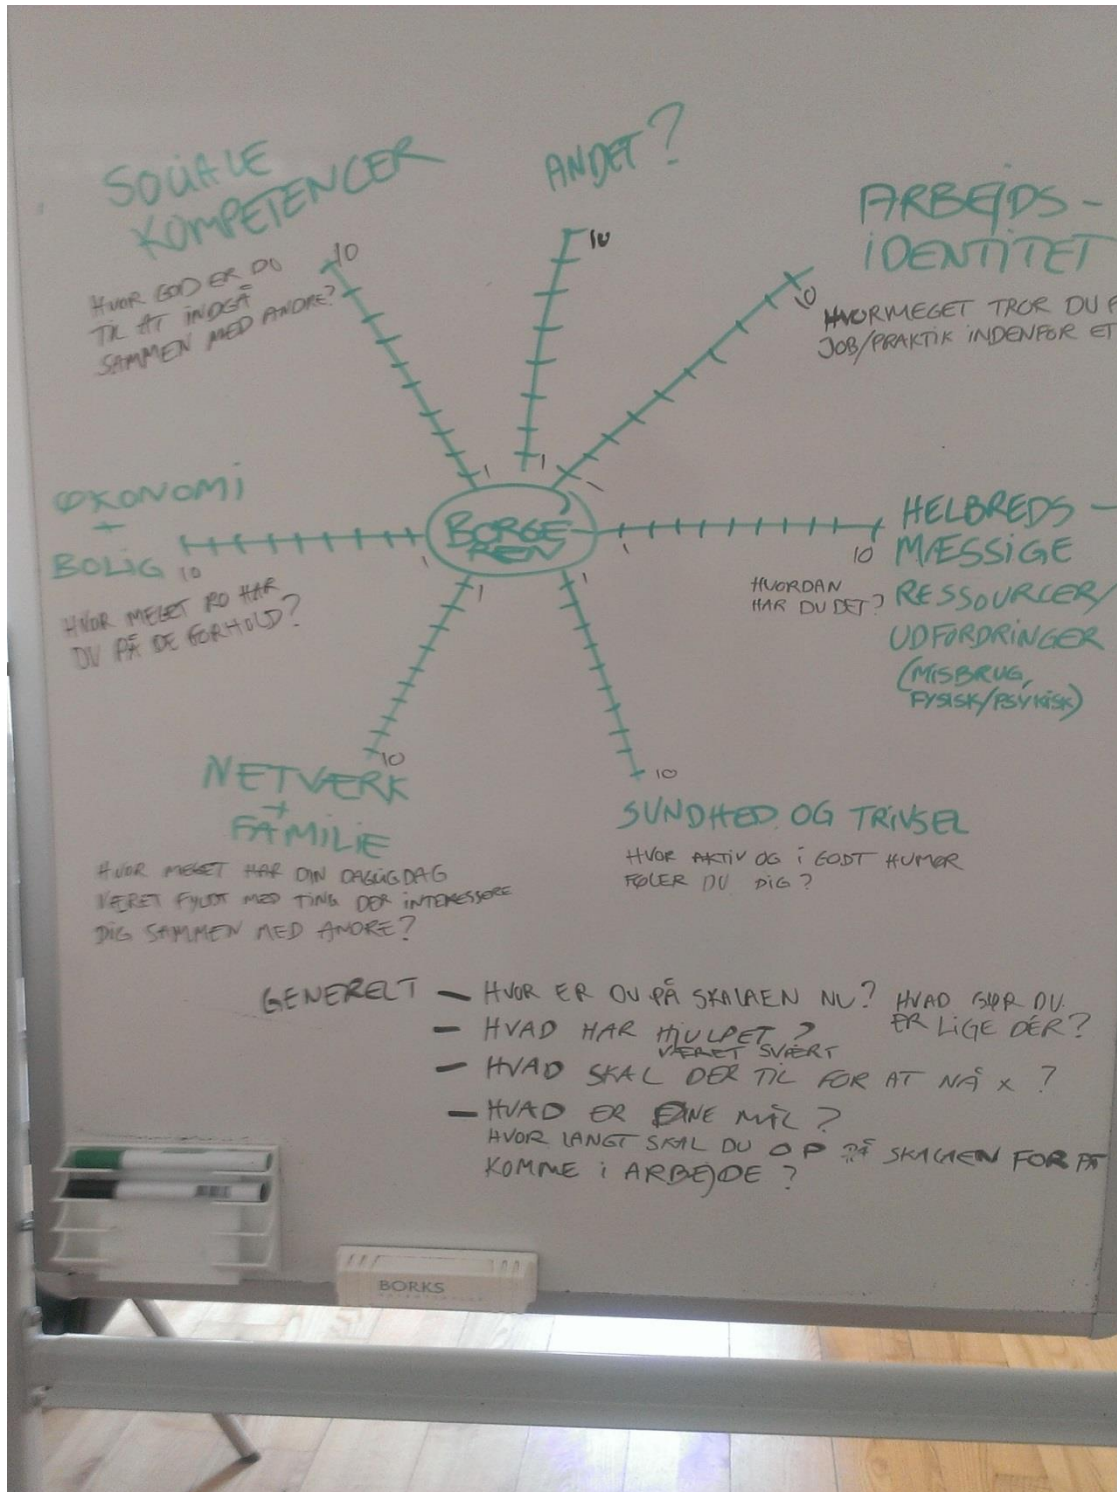 SOCIALE
KOMPETENCER
HVOR GOD ER DU
TIL AT INDGÅ
SAMMEN MED ANDRE?
10
1
ANDET?
10
1
ARBEJDS-
IDENTITET
10
1
HVORMEGET TROR DU
JOB/PRAKTIK INDENFOR ET
ØKONOMI
+
BOLIG
10
1
HVOR MEGET RO HAR
DU PÅ DE FORHOLD?
BORGE-
REN
1
10
HELBREDS-
MÆSSIGE
RESSOURCER/
UDFORDRINGER
(MISBRUG,
FYSISK/PSYKISK)
HVORDAN
HAR DU DET?
1
10
NETVÆRK
+
FAMILIE
HVOR MEGET HAR DIN DAGLIGDAG
VÆRET FYLDT MED TING DER INTERESSERE
DIG SAMMEN MED ANDRE?
1
10
SUNDHED OG TRIVSEL
HVOR AKTIV OG I GODT HUMØR
FØLER DU DIG?
GENERELT - HVOR ER DU PÅ SKALAEN NU? HVAD GØR DU
ER LIGE DÉR?
- HVAD HAR HJULPET?
VÆRET SVÆRT
- HVAD SKAL DER TIL FOR AT NÅ X?
- HVAD ER DINE MÅL?
HVOR LANGT SKAL DU OP PÅ SKALAEN FOR AT
KOMME I ARBEJDE?
BORKS